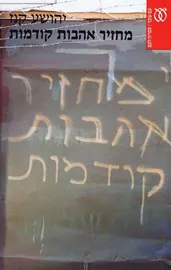 יהושע קנז
מחזיר אהבות קודמות
מחזיר
אהבות
קודמות